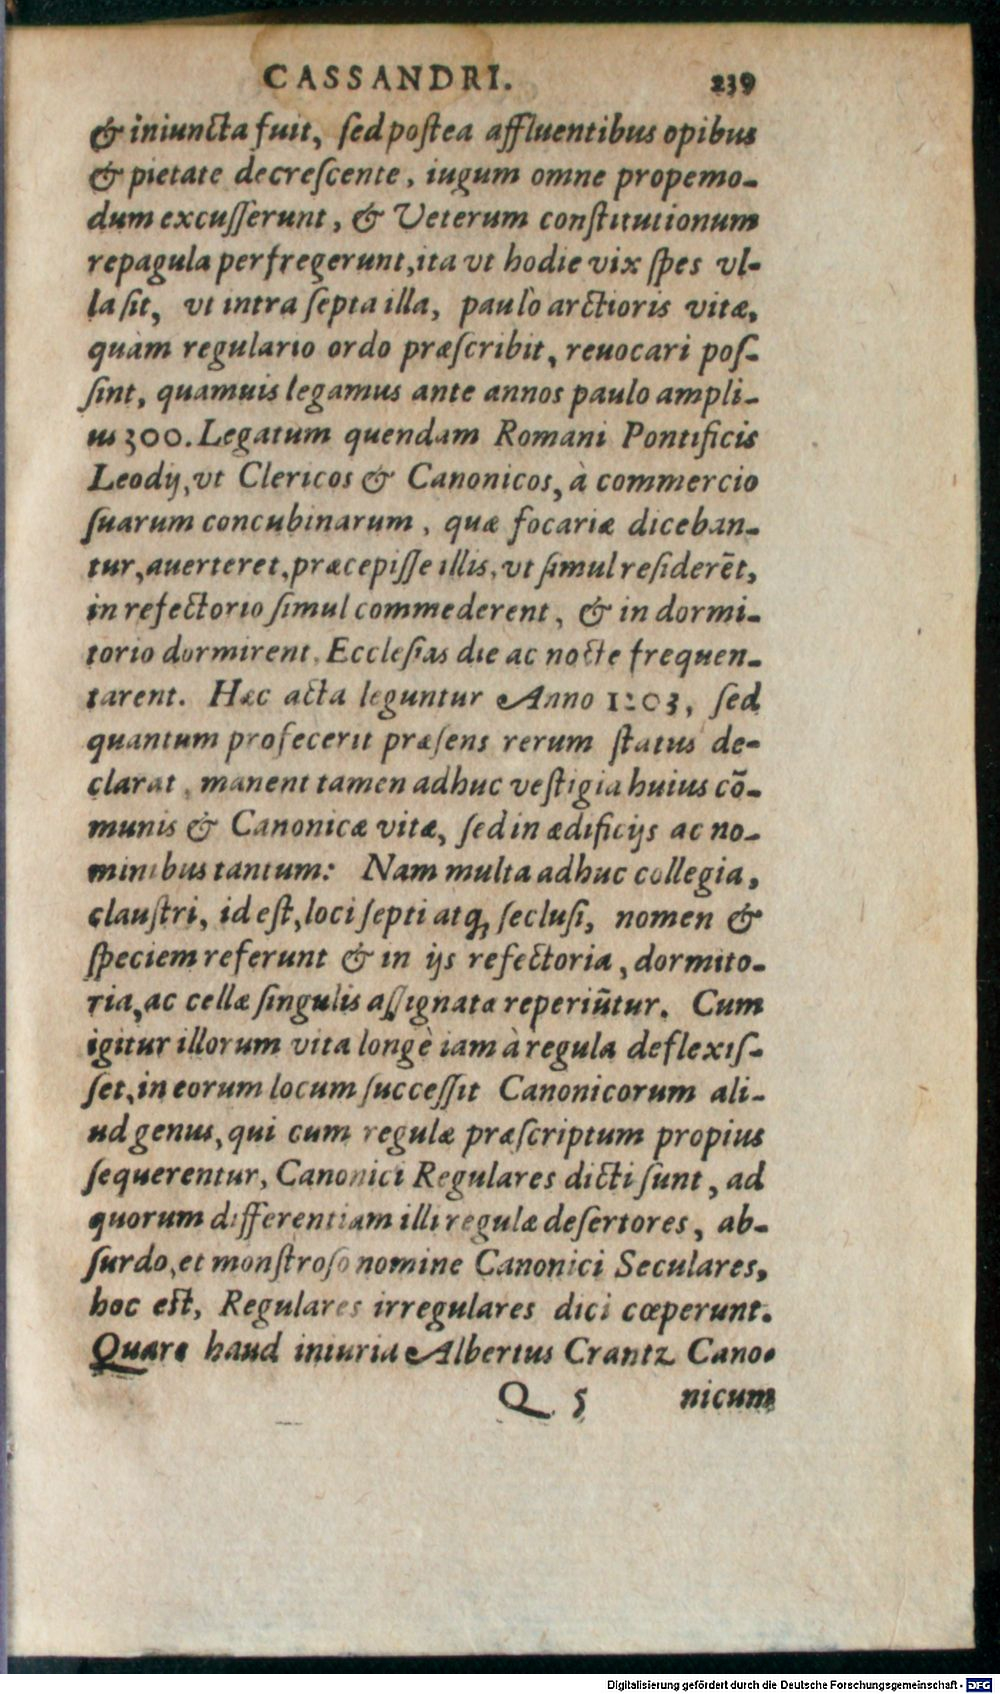 CASSANDRI. 239
& iniuncta fuit, ſed poſtea affluentibus opibus
& pietate decreſcente, iugum omne propemo-
dum excuſſerunt, & Veterum conſtitutionum
repagula perfregerunt, ita vt hodie vix ſpes vl-
la ſit, vt intra ſepta illa, paulò arctioris vitæ,
quàm regulario ordo præſcribit, reuocari poſ-
ſint, quamuis legamus ante annos paulo ampli-
us 300. Legatum quendam Romani Pontificis
Leodij, vt Clericos & Canonicos, à commercio
ſuarum concubinarum, quæ focariæ diceban-
tur, auerteret, præcepiſſe illis, vt ſimul reſiderēt,
in refectorio ſimul commederent, & in dormi-
torio dormirent, Eccleſias die ac nocte frequen-
tarent. Hæc acta leguntur Anno 1203, ſed
quantum profecerit præſens rerum ſtatus de-
clarat, manent tamen adhuc veſtigia huius cō-
munis & Canonicæ vitæ, ſed in ædificijs ac no-
minibus tantum: Nam multa adhuc collegia,
clauſtri, id eſt, loci ſepti atq; ſecluſi, nomen &
ſpeciem referunt & in ijs refectoria, dormito-
ria, ac cellæ ſingulis aſſignata reperiūtur. Cum
igitur illorum vita longè iam à regula deflexiſ-
ſet, in eorum locum ſucceſſit Canonicorum ali-
ud genus, qui cum regulæ præſcriptum propius
ſequerentur, Canonici Regulares dicti ſunt, ad
quorum differentiam illi regulæ deſertores, ab-
ſurdo, et monſtroſo nomine Canonici Seculares,
hoc eſt, Regulares irregulares dici cœperunt.
Quare haud iniuria Albertus Crantz Cano-
Q 5 nicum
Digitalisierung gefördert durch die Deutsche Forschungsgemeinschaft - DFG